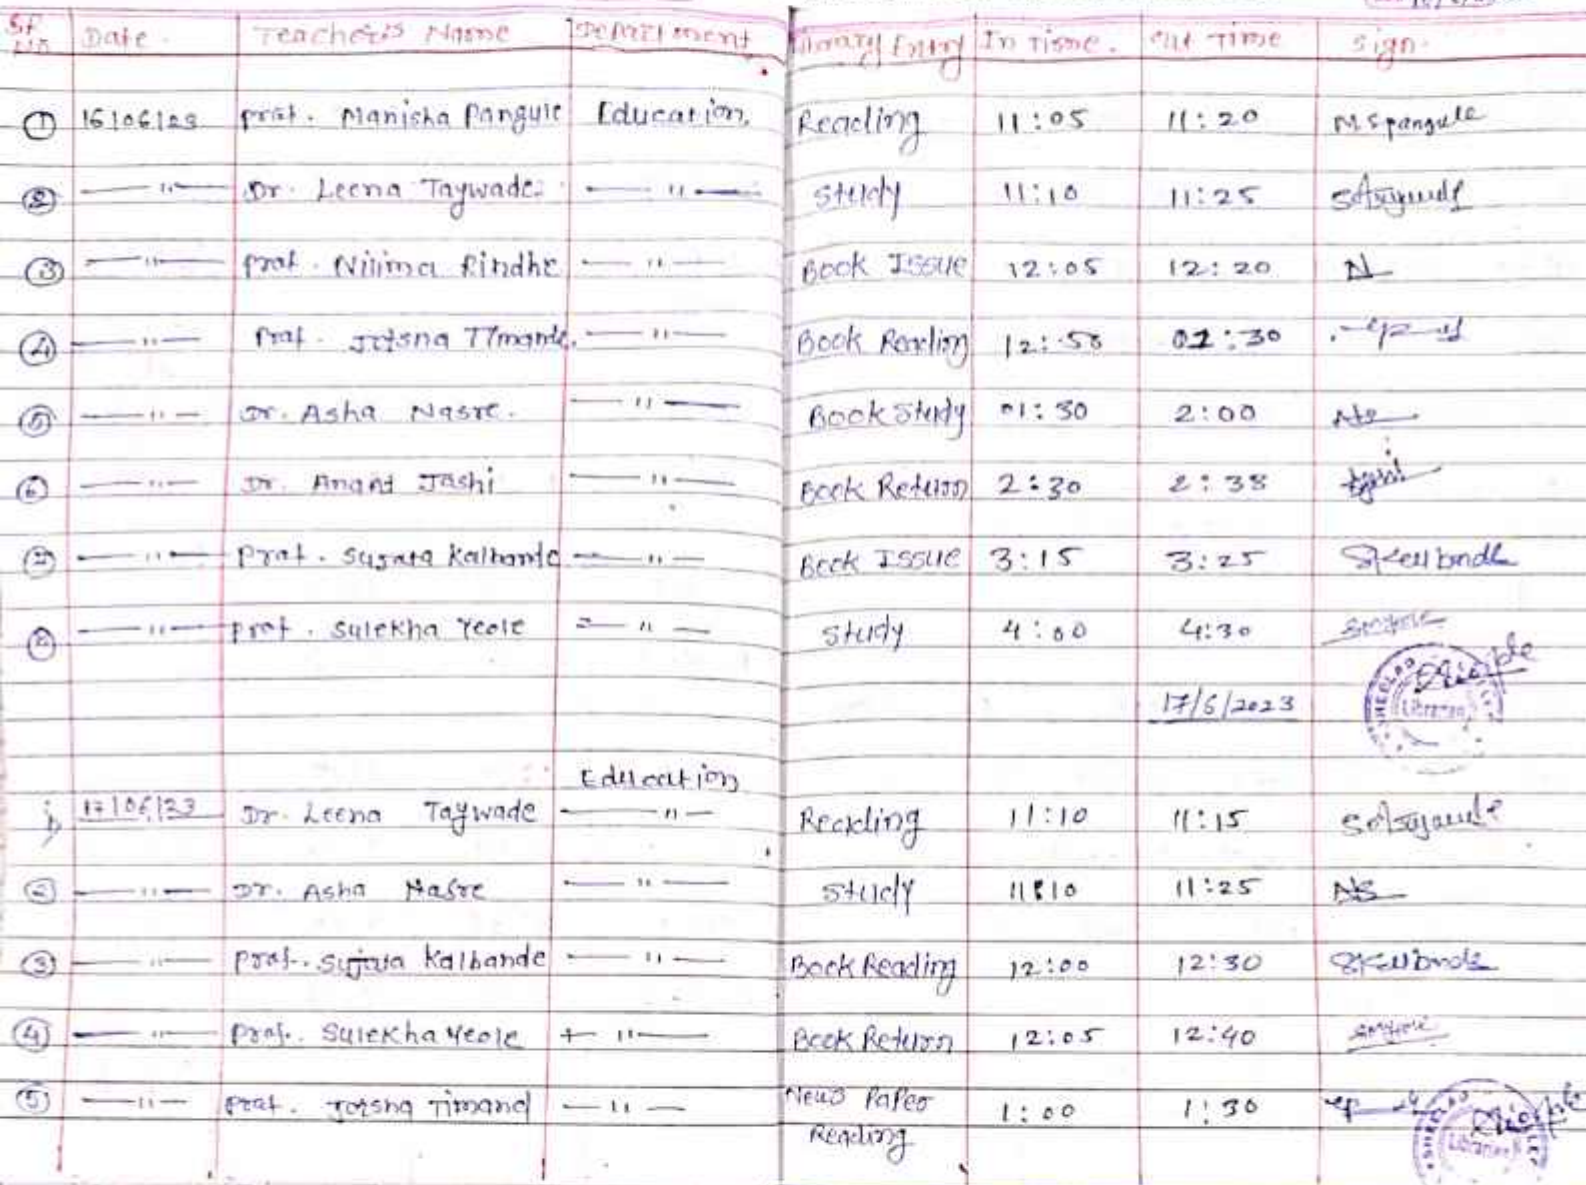 Sr No Date. Teacher's Name Department Library Entry In Time. Out Time Sign.
① 16/06/23 Prof. Manisha Pangule Education Reading 11:05 11:20 MSpangule
② —"— Dr. Leena Taywade —"— Study 11:10 11:25
③ —"— Prof. Nilima Rindhe —"— Book Issue 12:05 12:20 N
④ —"— Prof. Jotsna Timande. —"— Book Reading 12:50 01:30
⑤ —"— Dr. Asha Nasre. —"— Book Study 01:30 2:00
⑥ —"— Dr. Anant Joshi —"— Book Return 2:30 2:38
⑦ —"— Prof. Sujata Kalbande —"— Book Issue 3:15 3:25 SKalbande
⑧ —"— Prof. Sulekha Yeole —"— Study 4:00 4:30
17/6/2023
Librarian
Education
17/06/23 Dr. Leena Taywade —"— Reading 11:10 11:15
② —"— Dr. Asha Nasre —"— Study 11:10 11:25 NS
③ —"— Prof. Sujata Kalbande —"— Book Reading 12:00 12:30 SKalbande
④ —"— Prof. Sulekha Yeole —"— Book Return 12:05 12:40
⑤ —"— Prof. Jotsna Timand —"— News Paper 1:00 1:30
Reading
Librarian